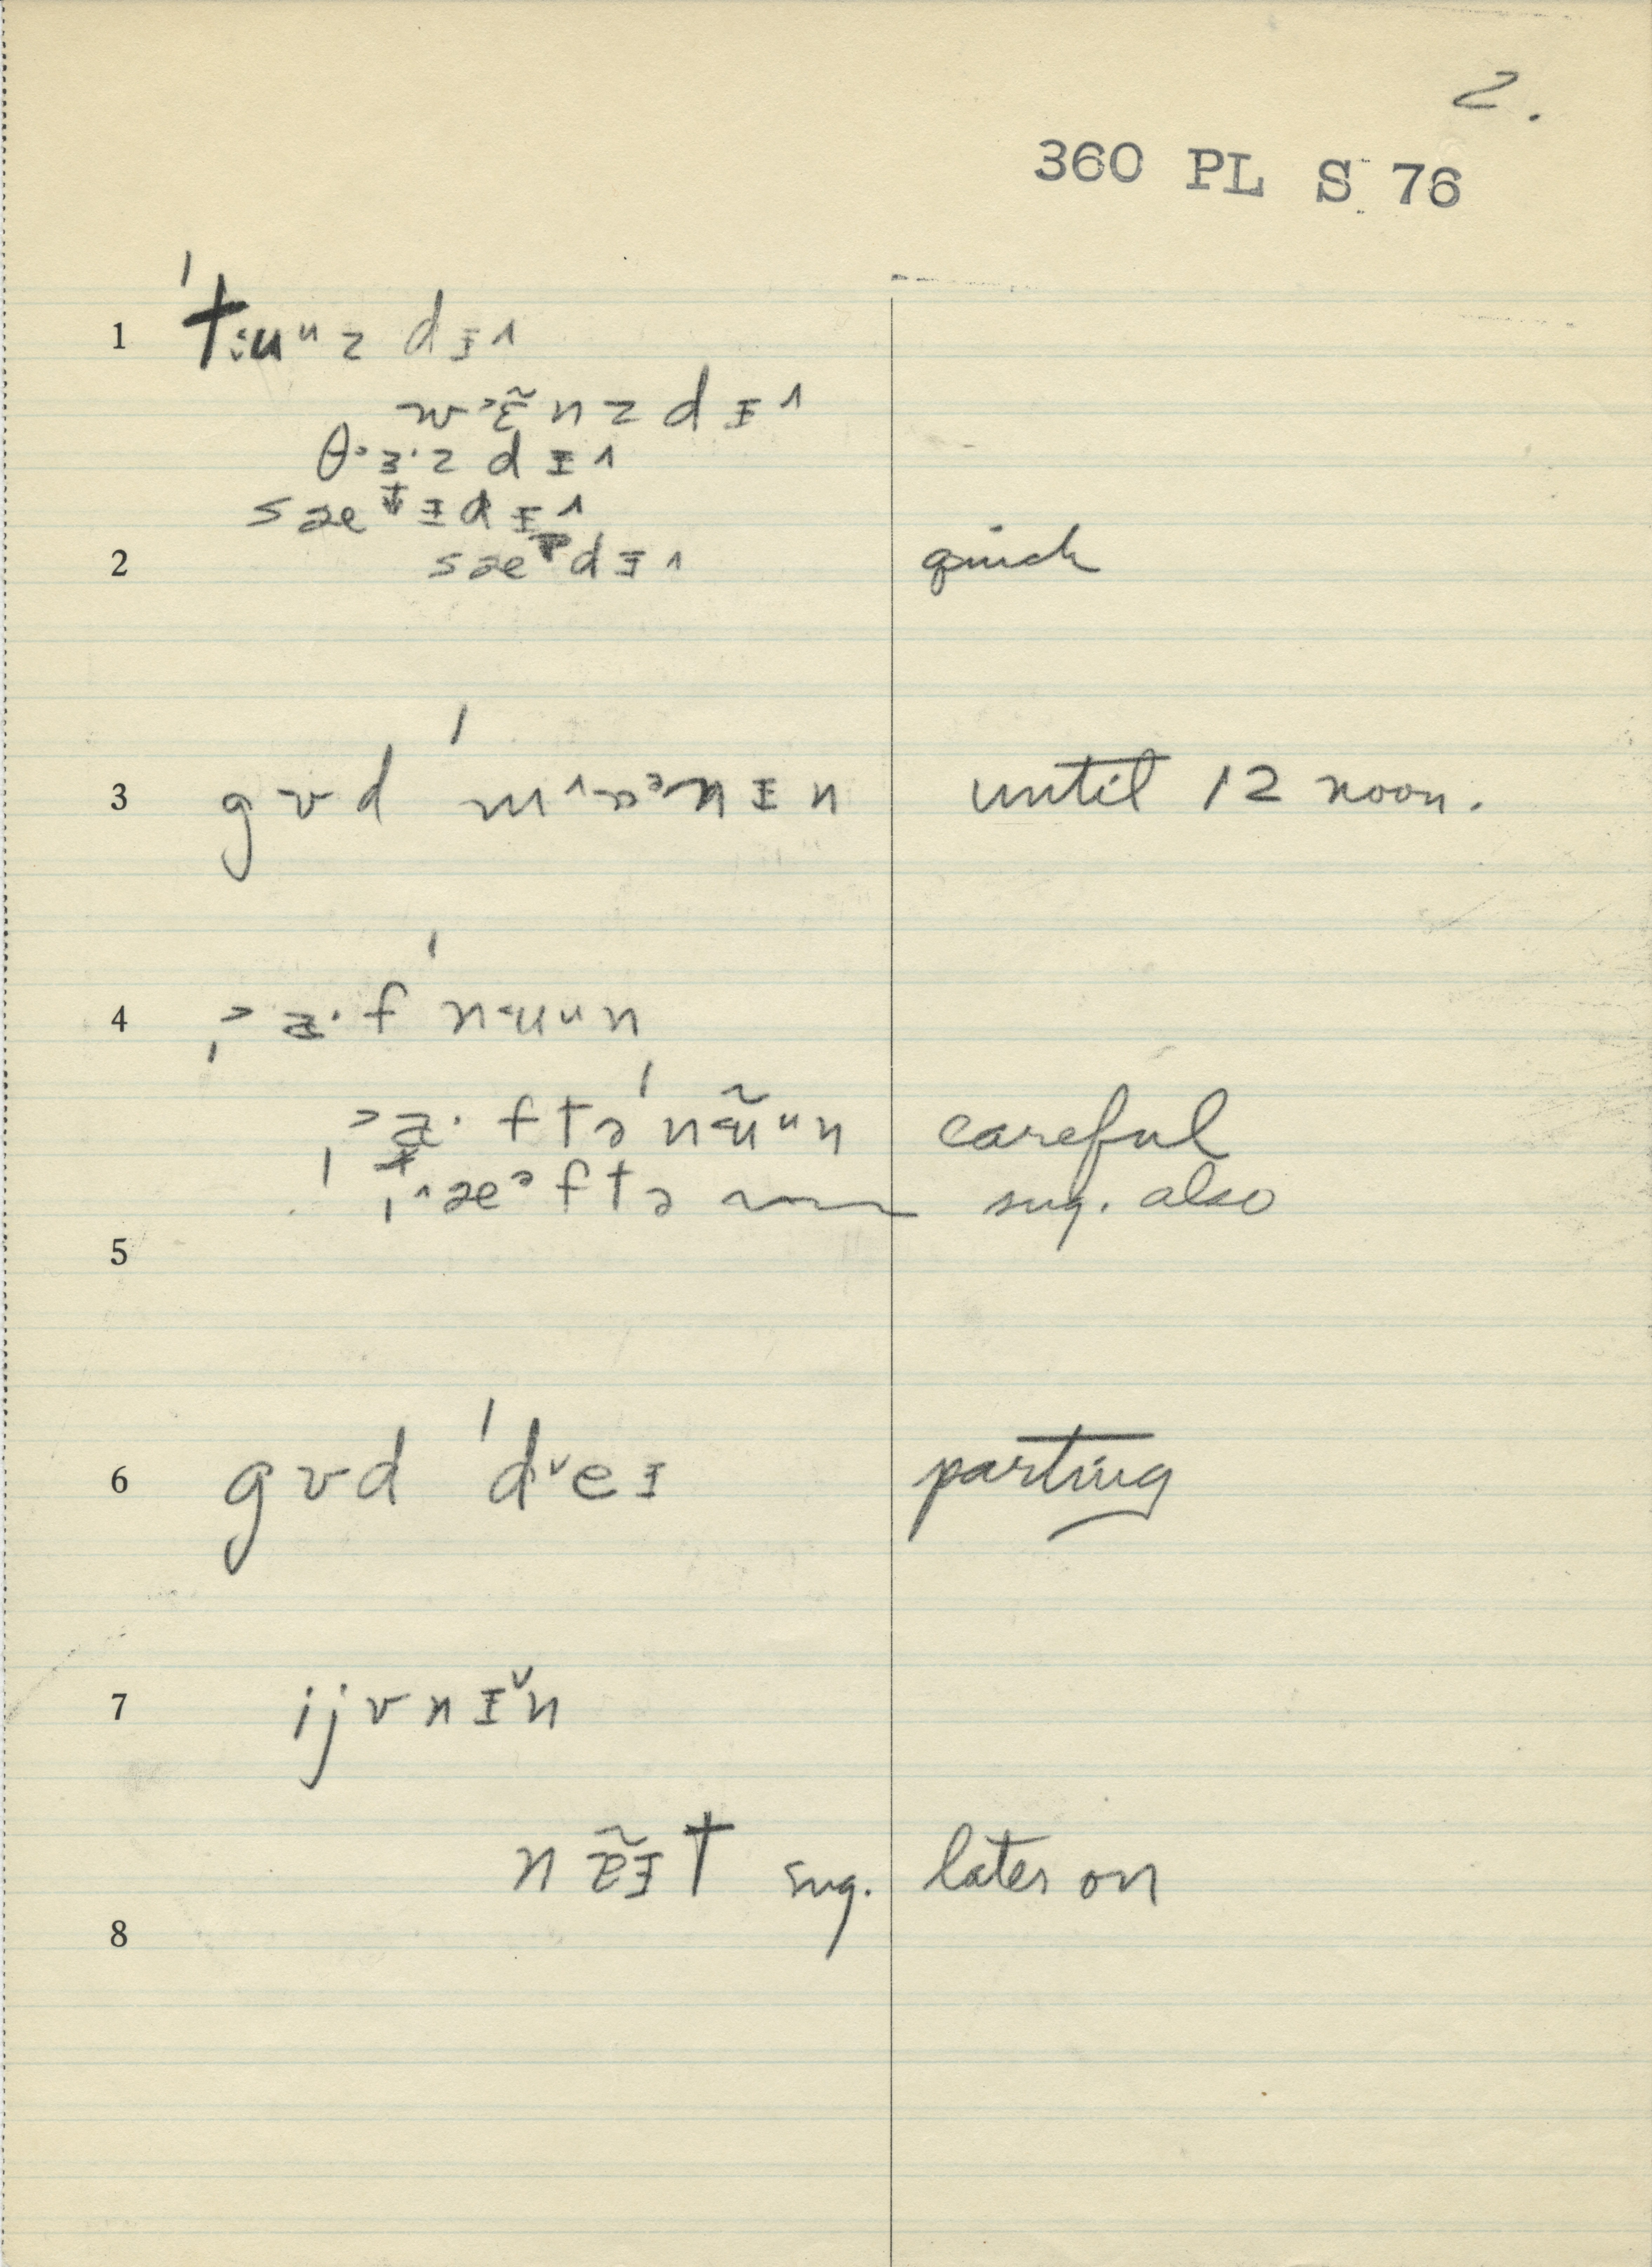 2.
360 PL S 76
1 ˈt:uᵘz dɪ˄
w˒ɛ̃nzdɪ˄
θ˒ɜ·z dɪ˄
sæɪdɪ˄
2 sædɪ˄ quick
3 gʊd ˈmnɪn until 12 noon.
4 f ˈnuᵘn
ftəˈnn careful
æftə sug. also
5
6 gʊd ˈd˅eɪ parting
7 ijvnɪ˅n
nẽɪt sug. later on
8